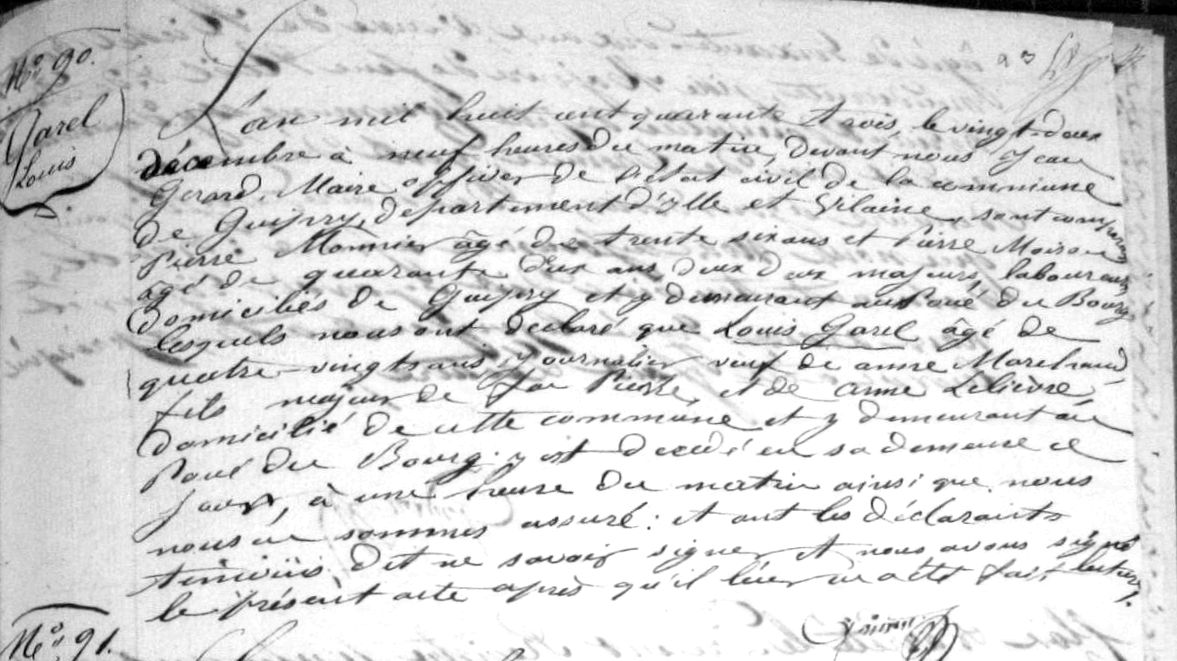 Nº 90.
Garel
Louis
L'an mil huit cent quarante trois, le vingt-deux
décembre à neuf heures du matin, devant nous Jean
Gérard, Maire officier de l'état civil de la commune
de Guipry, département d'ylle et Vilaine, sont comparus
Pierre Monnier âgé de trente six ans et Pierre
âgé de quarante deux ans deux majeurs, laboureurs
domiciliés de Guipry et y demeurant au Pavé du Bourg
lesquels nous ont déclaré que Louis Garel âgé de
quatre-vingts ans, journalier veuf de anne Marchand
fils majeur de feu Pierre, et de anne Lelievre
domicilié de cette commune et y demeurant au
Pavé du Bourg: y est décédé en sa demeure ce
jour, à une heure du matin ainsi que nous
nous en sommes assuré: et ont les déclarants
témoins, dit ne savoir signer et nous avons signé
le présent acte après qu'il leur en a été fait lecture.
Nº 91.